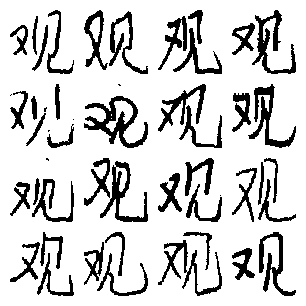 观观观观
观观观观
观观观观
观观观观